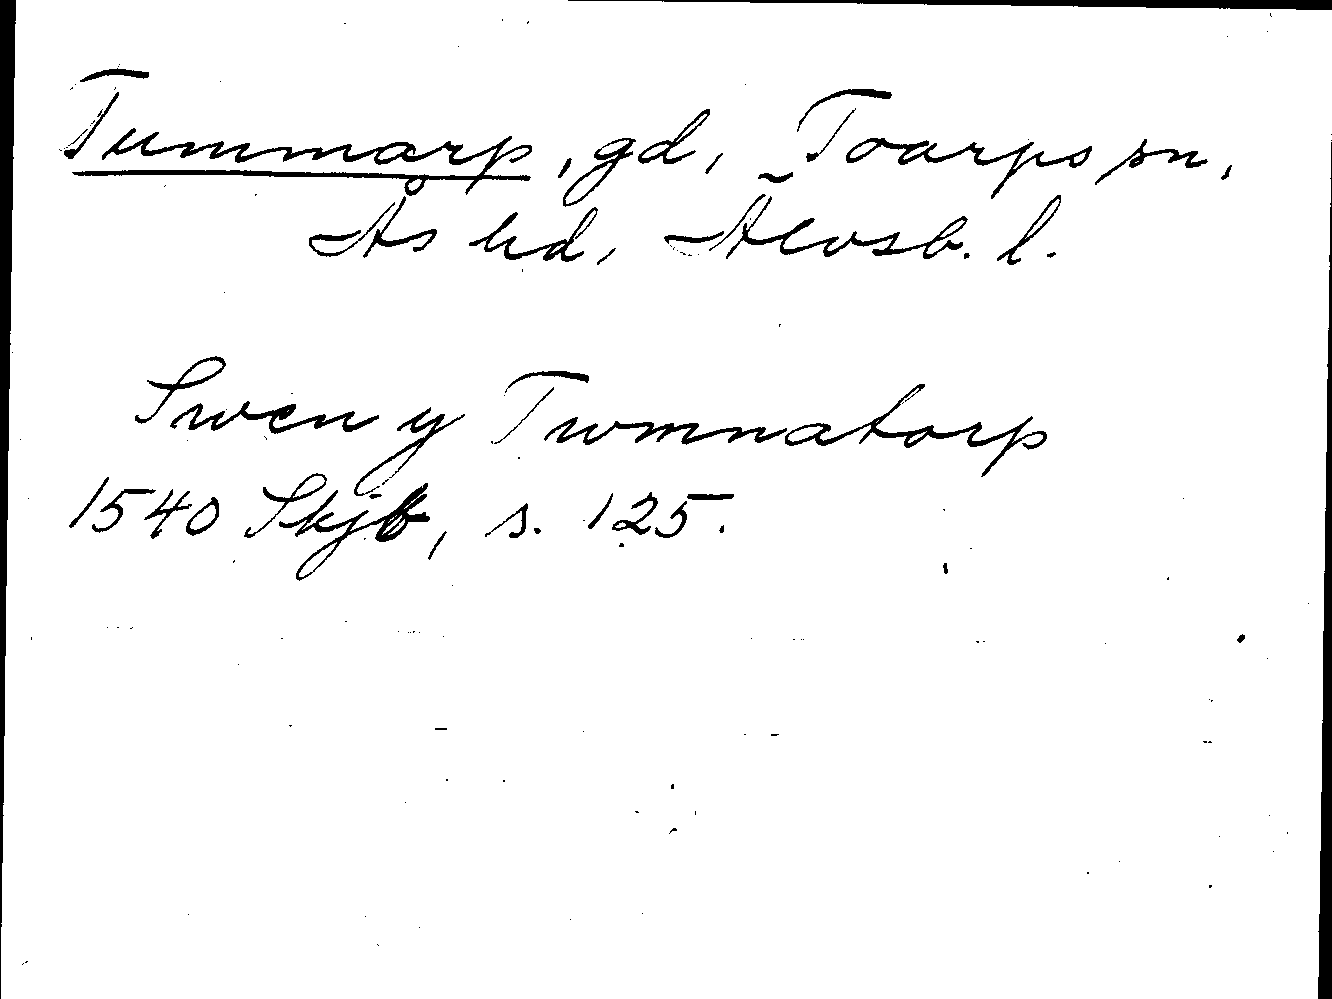 Tummarp, gd, Toarps sn,
Ås hd, Älvsb. l.
Swen y Twmnatorp
1540 Skjb, s. 125.